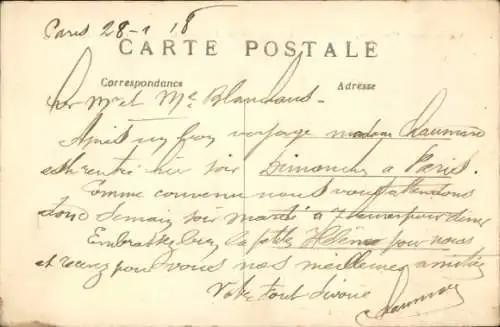 Paris 28-1 18
CARTE POSTALE
Correspondance
Adresse
Cher Mr et Me Blanchard -
Après un bon voyage madame Chaumar
est rentré hier soir Dimanche a Paris.
Comme convenu nous vous attendons
donc demain soir mardi a 7 heures pour diner
Embrassez bien la petite Hélène pour nous
et recevez pour vous nos meilleures amitiés
Votre tout dévoué